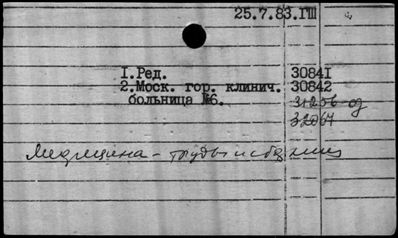 25.7.83.ГШ
1.Ред. 30841
2.Моск. гор. клинич. 30842
больница №6. 31256-од
32067
Медицина - труды и сб.